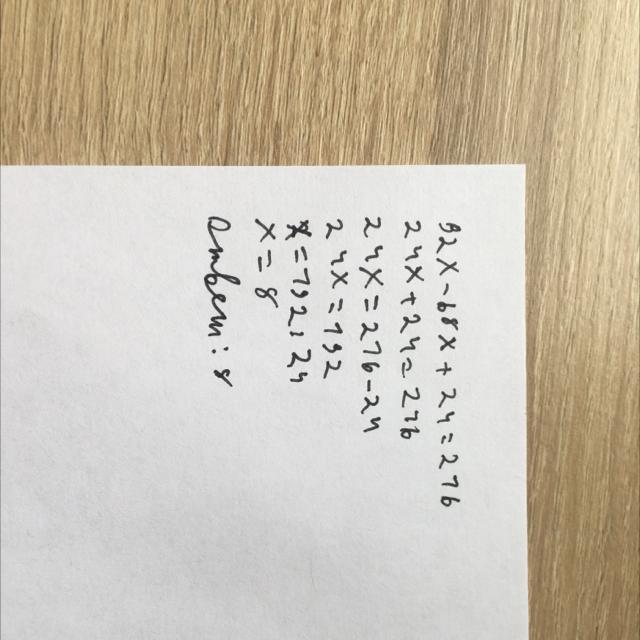 92x-68x+24=216
24x+24=216
24x=216-24
24x=192
x=192:24
x=8
Ответ: 8